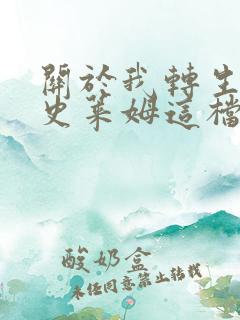 關於我轉生
史萊姆這檔
酸奶盒
未经同意禁止转载